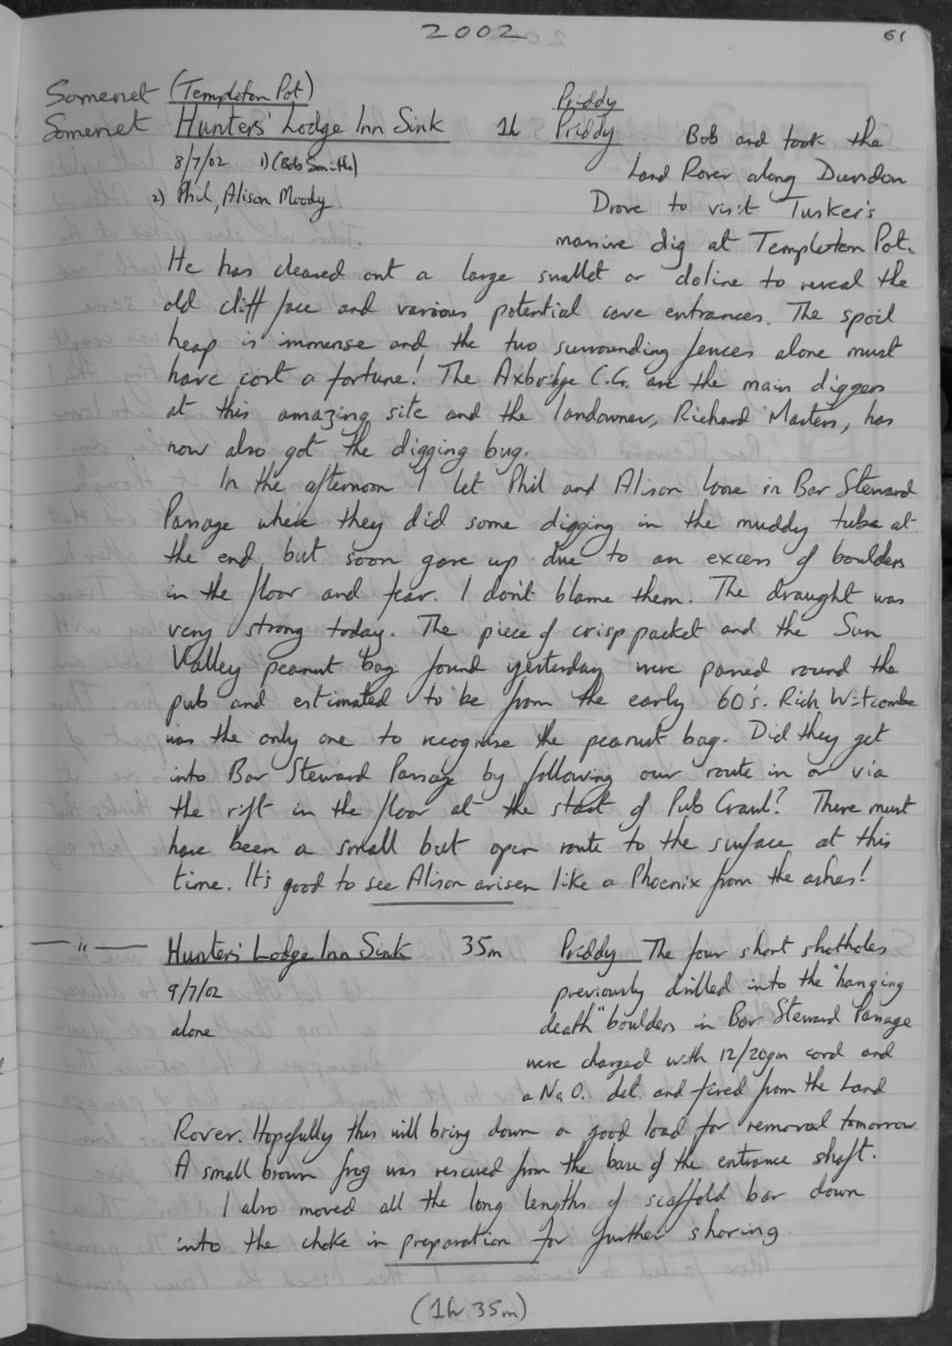 2002
61
Somerset (Templeton Pot) Priddy
Somerset Hunters' Lodge Inn Sink 1h Priddy Bob and took the
8/7/02 1) (Bob Smith) Land Rover along Dursdon
2) Phil, Alison Moody Drove to visit Tusker's
massive dig at Templeton Pot.
He has cleared out a large swallet or doline to reveal the
old cliff face and various potential cave entrances. The spoil
heap is immense and the two surrounding fences alone must
have cost a fortune! The Axbridge C.G. are the main diggers
at this amazing site and the landowner, Richard Masters, has
now also got the digging bug.
In the afternoon I let Phil and Alison loose in Bar Steward
Passage where they did some digging in the muddy tube at
the end, but soon gave up due to an excess of boulders
in the floor and fear. I don't blame them. The draught was
very strong today. The piece of crisp packet and the Sun
Valley peanut bag found yesterday were passed round the
pub and estimated to be from the early 60's. Rich Witcombe
was the only one to recognise the peanut bag. Did they get
into Bar Steward Passage by following our route in or via
the rift in the floor at the start of Pub Crawl? There must
have been a small but open route to the surface at this
time. It's good to see Alison arisen like a Phoenix from the ashes!
—— " —— Hunters' Lodge Inn Sink 35m Priddy The four short shotholes
9/7/02 previously drilled into the "hanging
alone death" boulders in Bar Steward Passage
were charged with 12/20gm cord and
a No 0. det. and fired from the Land
Rover. Hopefully this will bring down a good load for removal tomorrow.
A small brown frog was rescued from the base of the entrance shaft.
I also moved all the long lengths of scaffold bar down
into the choke in preparation for further shoring
(1h 35m)